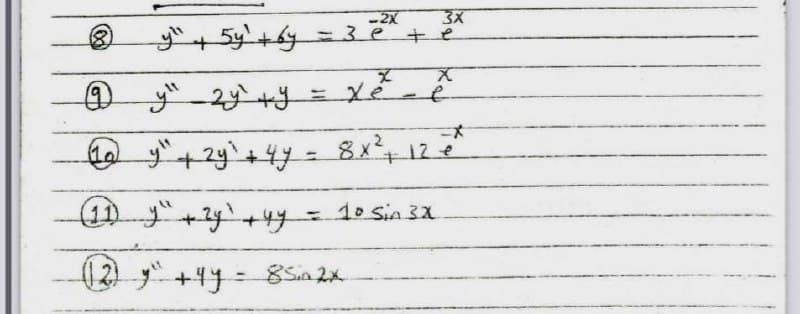 ⑧ y'' + 5y' + 6y = 3 e^{-2x} + e^{3x}
⑨ y'' - 2y' + y = x e^{x} - e^{x}
⑩ y'' + 2y' + 4y = 8x² + 12 e^{-x}
⑪ y'' + 2y' + 4y = 10 sin 3x
⑫ y'' + 4y = 8 Sin 2x